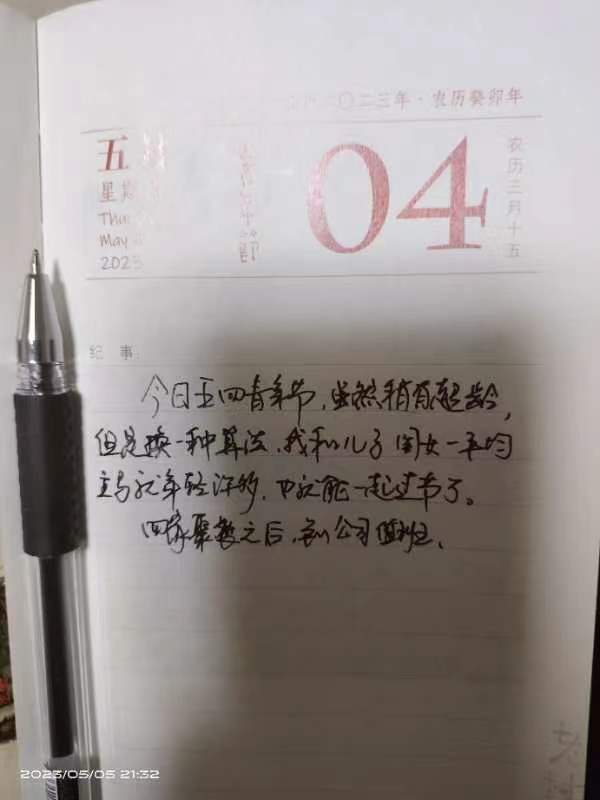 二〇二三年·农历癸卯年
五
04
农历三月十五
星期
Thu
May
2023
纪 事
今日五四青年节，虽然稍有超龄，
但是换一种算法，我和儿子闺女一平均
立马就年轻许多，也就能一起过节了。
四家聚餐之后，到公司值班。
2023/05/05 21:32